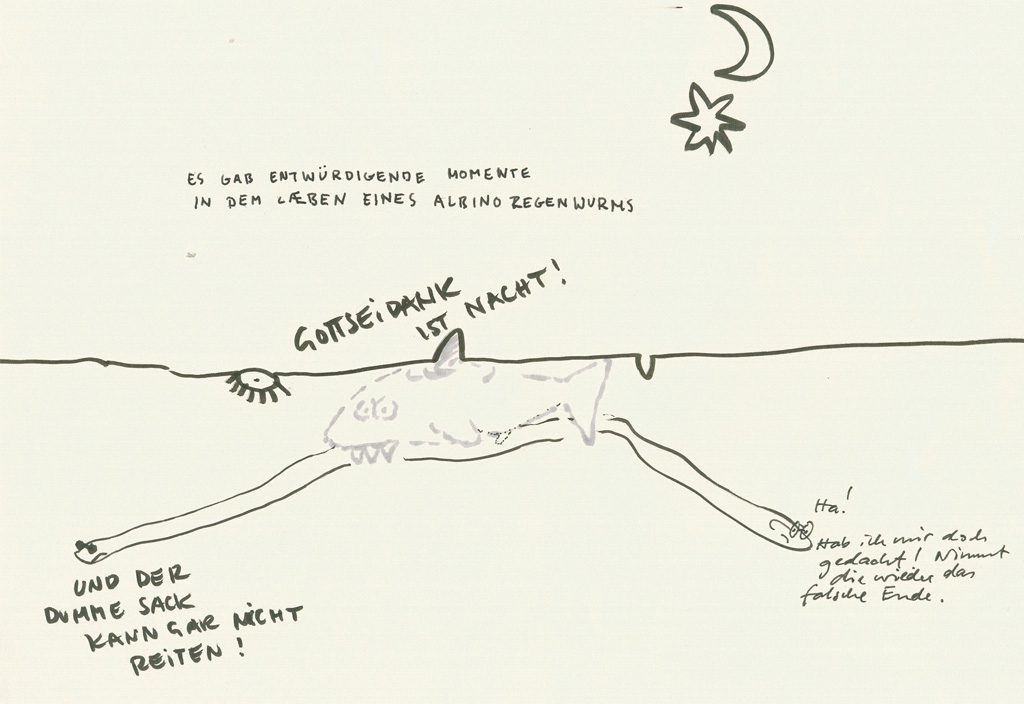 ES GAB ENTWÜRDIGENDE MOMENTE
IN DEM LÆBEN EINES ALBINO REGENWURMS
GOTTSEIDANK
IST NACHT!
Ha!
Hab ich mir doch
gedacht! Nimmt
die wieder das
falsche Ende.
UND DER
DUMME SACK
KANN GAR NICHT
REITEN!